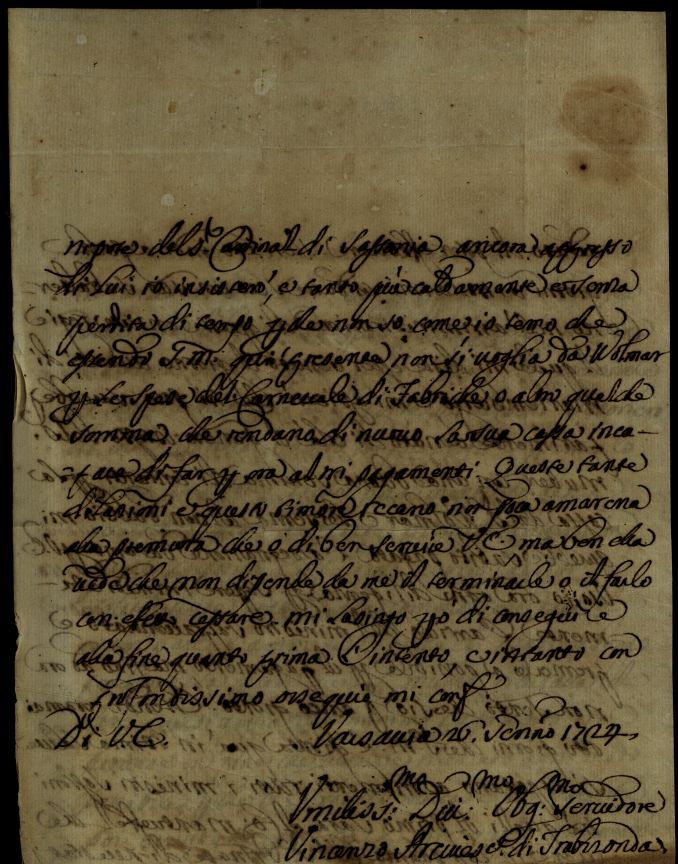 nipote del S.r Cardinal di Sassonia ancora appresso
di lui io insisterò, e tanto più caldamente e senza
perdita di tempo che non so come io temo che
essendo S. M. qui presente non si voglia da Wolmar
per le spese del Carnevale di Fabriche o altri qualche
somma che rendano di nuovo la sua cassa inca-
pace di far per ora altri pagamenti. Queste tante
dilazioni e questo timore recano non poca amarezza
alla premura che ò di ben servire V. E. ma ben ella
vede che non dipende da me il terminarle o il farle
con effetto cessare. mi lusingo però di conseguire
alla fine quanto prima l'intento, e intanto con
profondissimo ossequio mi conf.o
Di V. E. Varsavia 26. Genn.o 1724
Umiliss:mo Div:mo Obg:mo Servidore
Vincenzo Arcivesc.o di Trabisonda